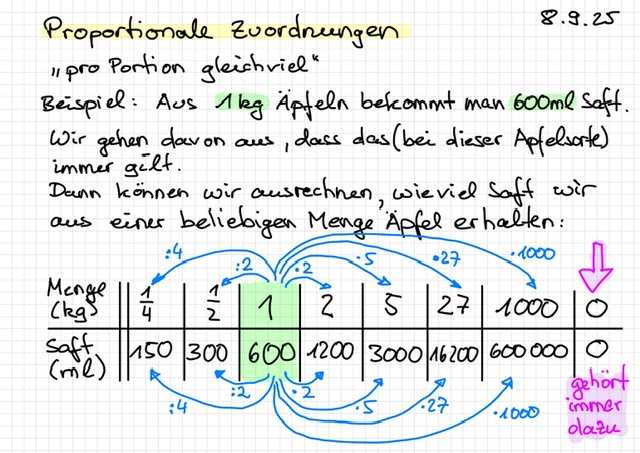 8.9.25
Proportionale Zuordnungen
„pro Portion gleichviel"
Beispiel: Aus 1kg Äpfeln bekommt man 600ml Saft.
Wir gehen davon aus, dass das (bei dieser Apfelsorte)
immer gilt.
Dann können wir ausrechnen, wieviel Saft wir
aus einer beliebigen Menge Äpfel erhalten:
:4 :2 ·2 ·5 ·27 ·1000
Menge (kg) | 1/4 | 1/2 | 1 | 2 | 5 | 27 | 1000 | 0
Saft (ml) | 150 | 300 | 600 | 1200 | 3000 | 16200 | 600 000 | 0
:4 :2 ·2 ·5 ·27 ·1000
gehört
immer
dazu